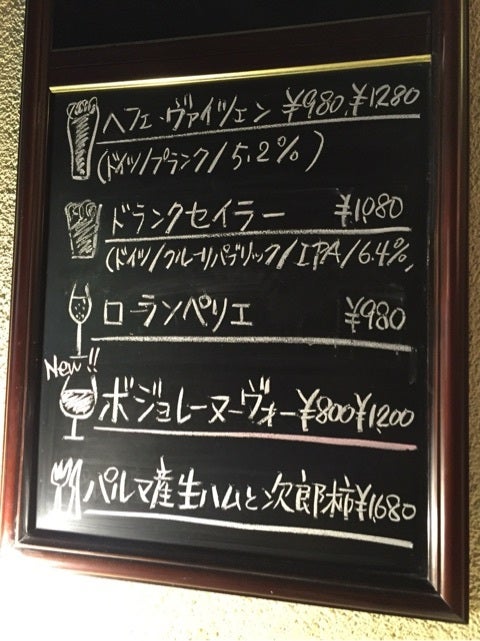 ヘフェ・ヴァイツェン ¥980, ¥1280
(ドイツ/プランク/5.2%)
ドランクセイラー ¥1080
(ドイツ/クルーリパブリック/IPA/6.4%)
ローランペリエ ¥980
New!!
ボジョレーヌーヴォー ¥800 ¥1,200
パルマ産生ハムと次郎柿 ¥1,680